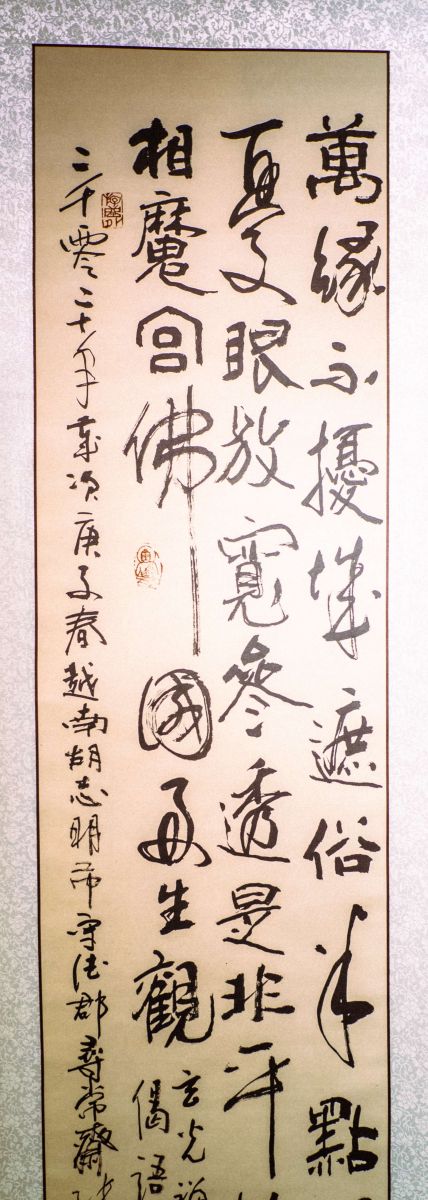 萬緣不擾城遮俗半點
憂眼放寬參透是非平
相魔宮佛國好生觀
玄光禪
偈語
二千零二十年歲次庚子春越南胡志明市守德郡尋常齋